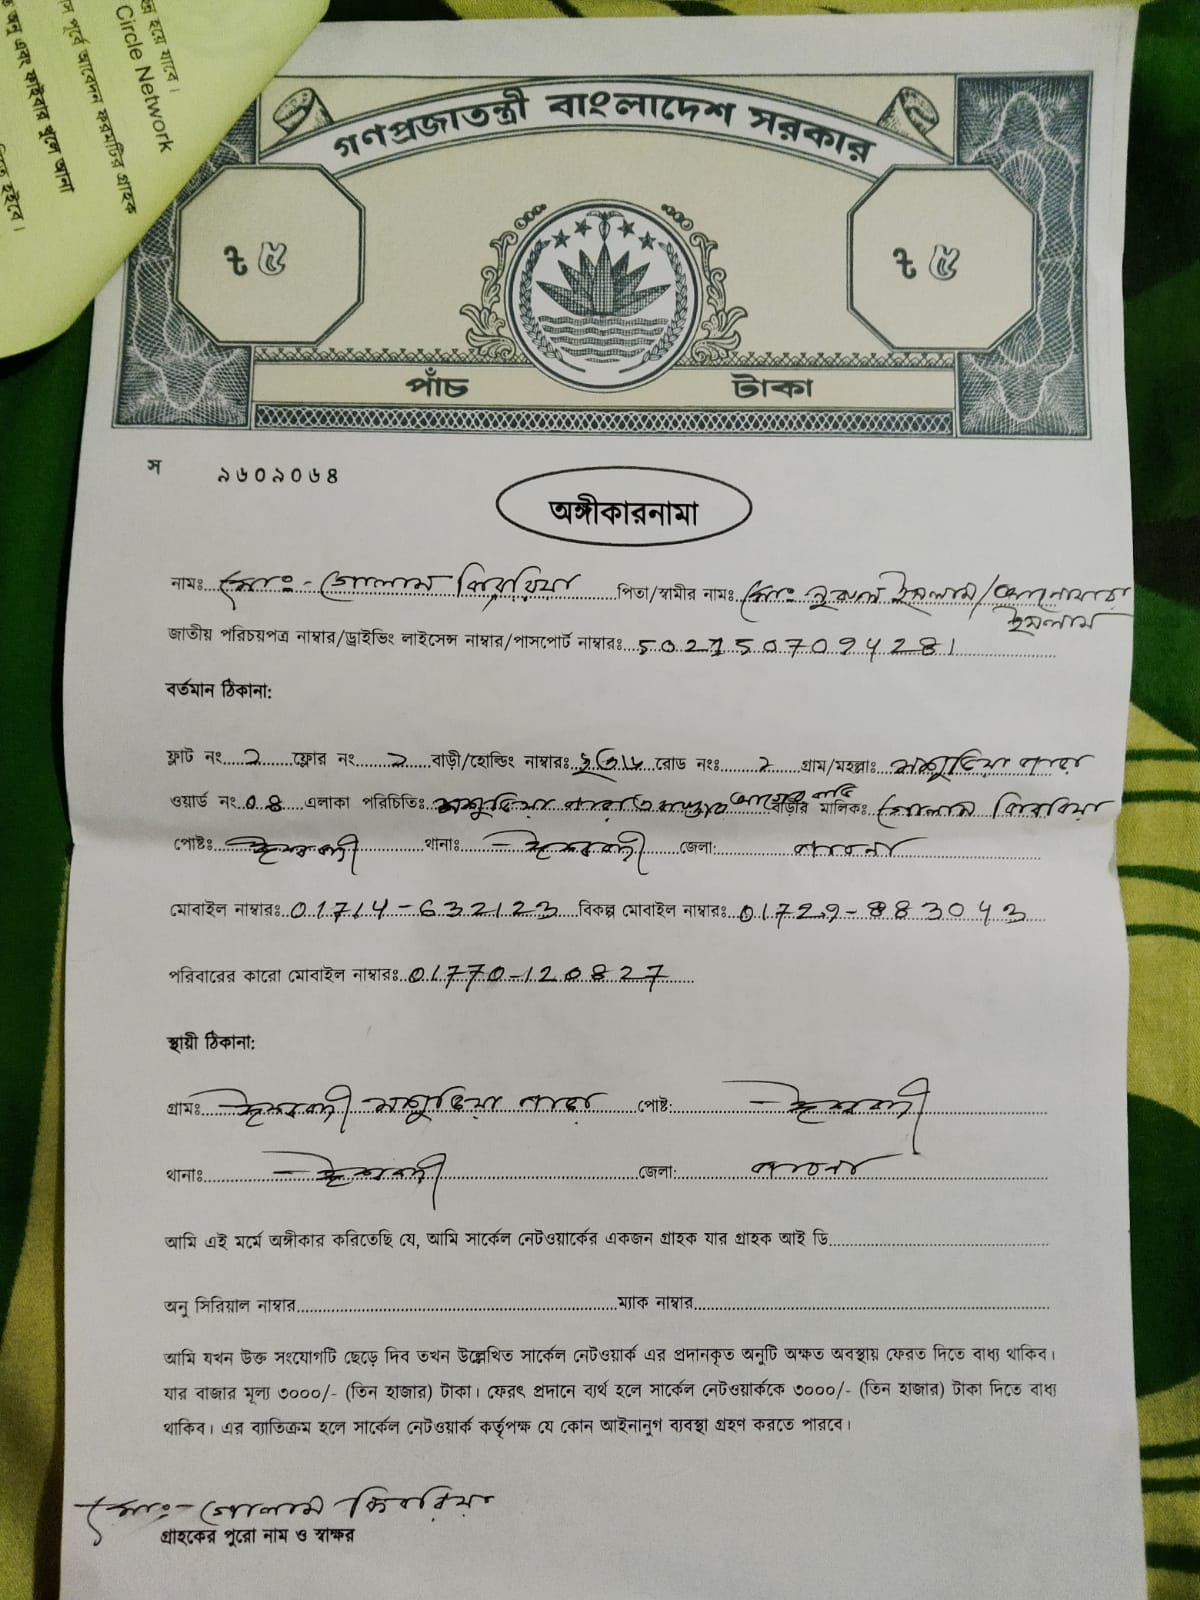 হয়ে যাবে।
Circle Network
পূর্বে আবেদন ফরমটির গ্রাহক
অনু এবং ফাইবার খুলে আনা
হইবে।
গণপ্রজাতন্ত্রী বাংলাদেশ সরকার
৳ ৫ ৳ ৫
পাঁচ টাকা
স ৯৬০৯০৬৪
অঙ্গীকারনামা
নামঃ মোঃ- গোলাম কিবরিয়া পিতা/স্বামীর নামঃ মোঃ নুরুল ইসলাম/
ইসলাম
জাতীয় পরিচয়পত্র নাম্বার/ড্রাইভিং লাইসেন্স নাম্বার/পাসপোর্ট নাম্বারঃ 5021507094281
বর্তমান ঠিকানা:
ফ্লাট নং ২ ফ্লোর নং ২ বাড়ী/হোল্ডিং নাম্বারঃ রোড নংঃ ২ গ্রাম/মহল্লাঃ মশুড়িয়া পাড়া
ওয়ার্ড নং 04 এলাকা পরিচিতিঃ মশুড়িয়া পাড়া বাড়ীর মালিকঃ গোলাম কিবরিয়া
পোষ্টঃ ঈশ্বরদী থানাঃ ঈশ্বরদী জেলা: পাবনা
মোবাইল নাম্বারঃ 01714-632123 বিকল্প মোবাইল নাম্বারঃ 01729-883043
পরিবারের কারো মোবাইল নাম্বারঃ 01770-120827
স্থায়ী ঠিকানা:
গ্রামঃ ঈশ্বরদী মশুড়িয়া পাড়া পোষ্ট: ঈশ্বরদী
থানাঃ ঈশ্বরদী জেলা: পাবনা
আমি এই মর্মে অঙ্গীকার করিতেছি যে, আমি সার্কেল নেটওয়ার্কের একজন গ্রাহক যার গ্রাহক আই ডি
অনু সিরিয়াল নাম্বার ম্যাক নাম্বার
আমি যখন উক্ত সংযোগটি ছেড়ে দিব তখন উল্লেখিত সার্কেল নেটওয়ার্ক এর প্রদানকৃত অনুটি অক্ষত অবস্থায় ফেরত দিতে বাধ্য থাকিব।
যার বাজার মূল্য ৩০০০/- (তিন হাজার) টাকা। ফেরৎ প্রদানে ব্যর্থ হলে সার্কেল নেটওয়ার্ককে ৩০০০/- (তিন হাজার) টাকা দিতে বাধ্য
থাকিব। এর ব্যাতিক্রম হলে সার্কেল নেটওয়ার্ক কর্তৃপক্ষ যে কোন আইনানুগ ব্যবস্থা গ্রহণ করতে পারবে।
মোঃ- গোলাম কিবরিয়া
গ্রাহকের পুরো নাম ও স্বাক্ষর